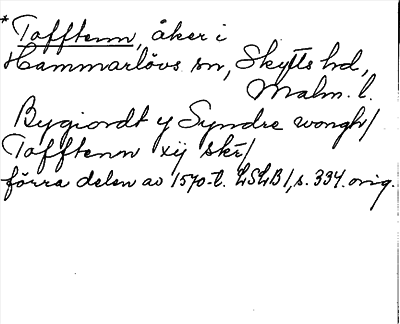 *Tofftenn, åker i
Hammarlövs sn, Skytts hd,
Malm. l.
Bygiordt y Syndre wongh/
Tofftenn xij skr/
förra delen av 1570-t. LSLB1, s. 334. orig.